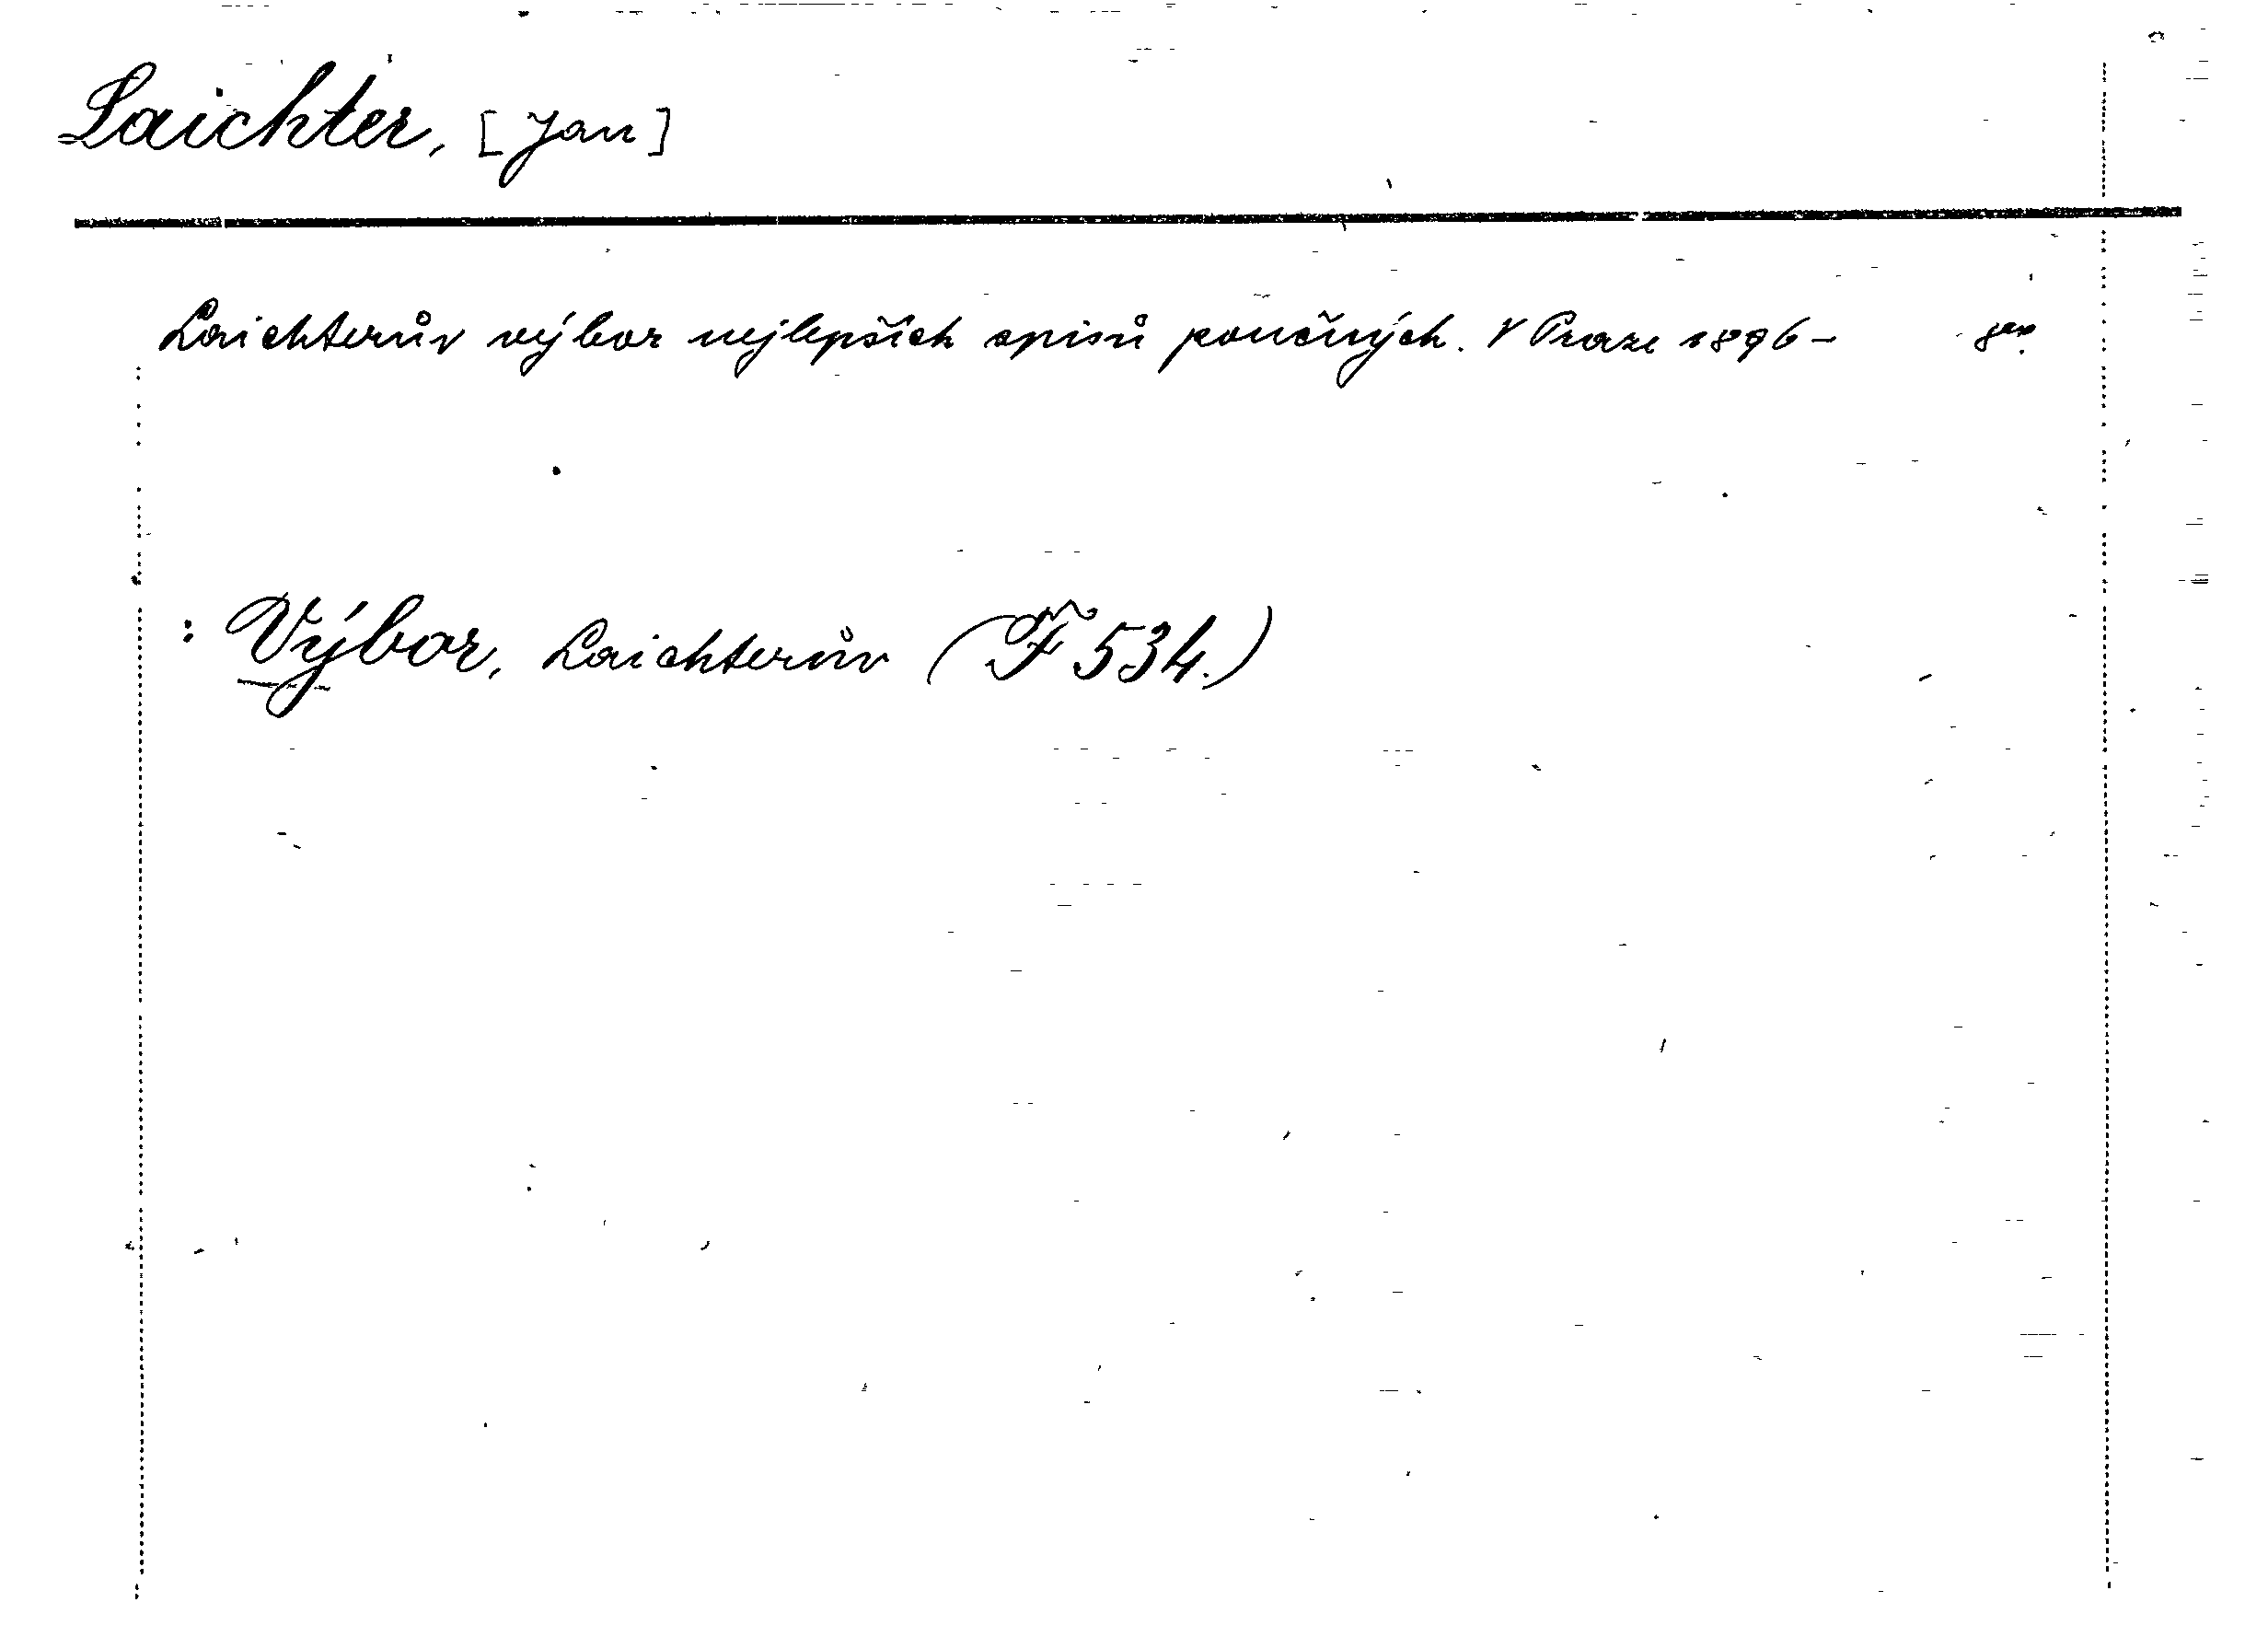 Laichter, [Jan]
Laichterův výbor nejlepších spisů poučných. V Praze 1896 - 8°.
: Výbor, Laichterův (F 534.)